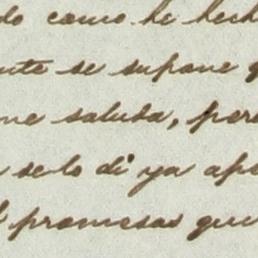 do como he hech
nte se supone q
me saluda, per
se lo di ya ap
promesas que